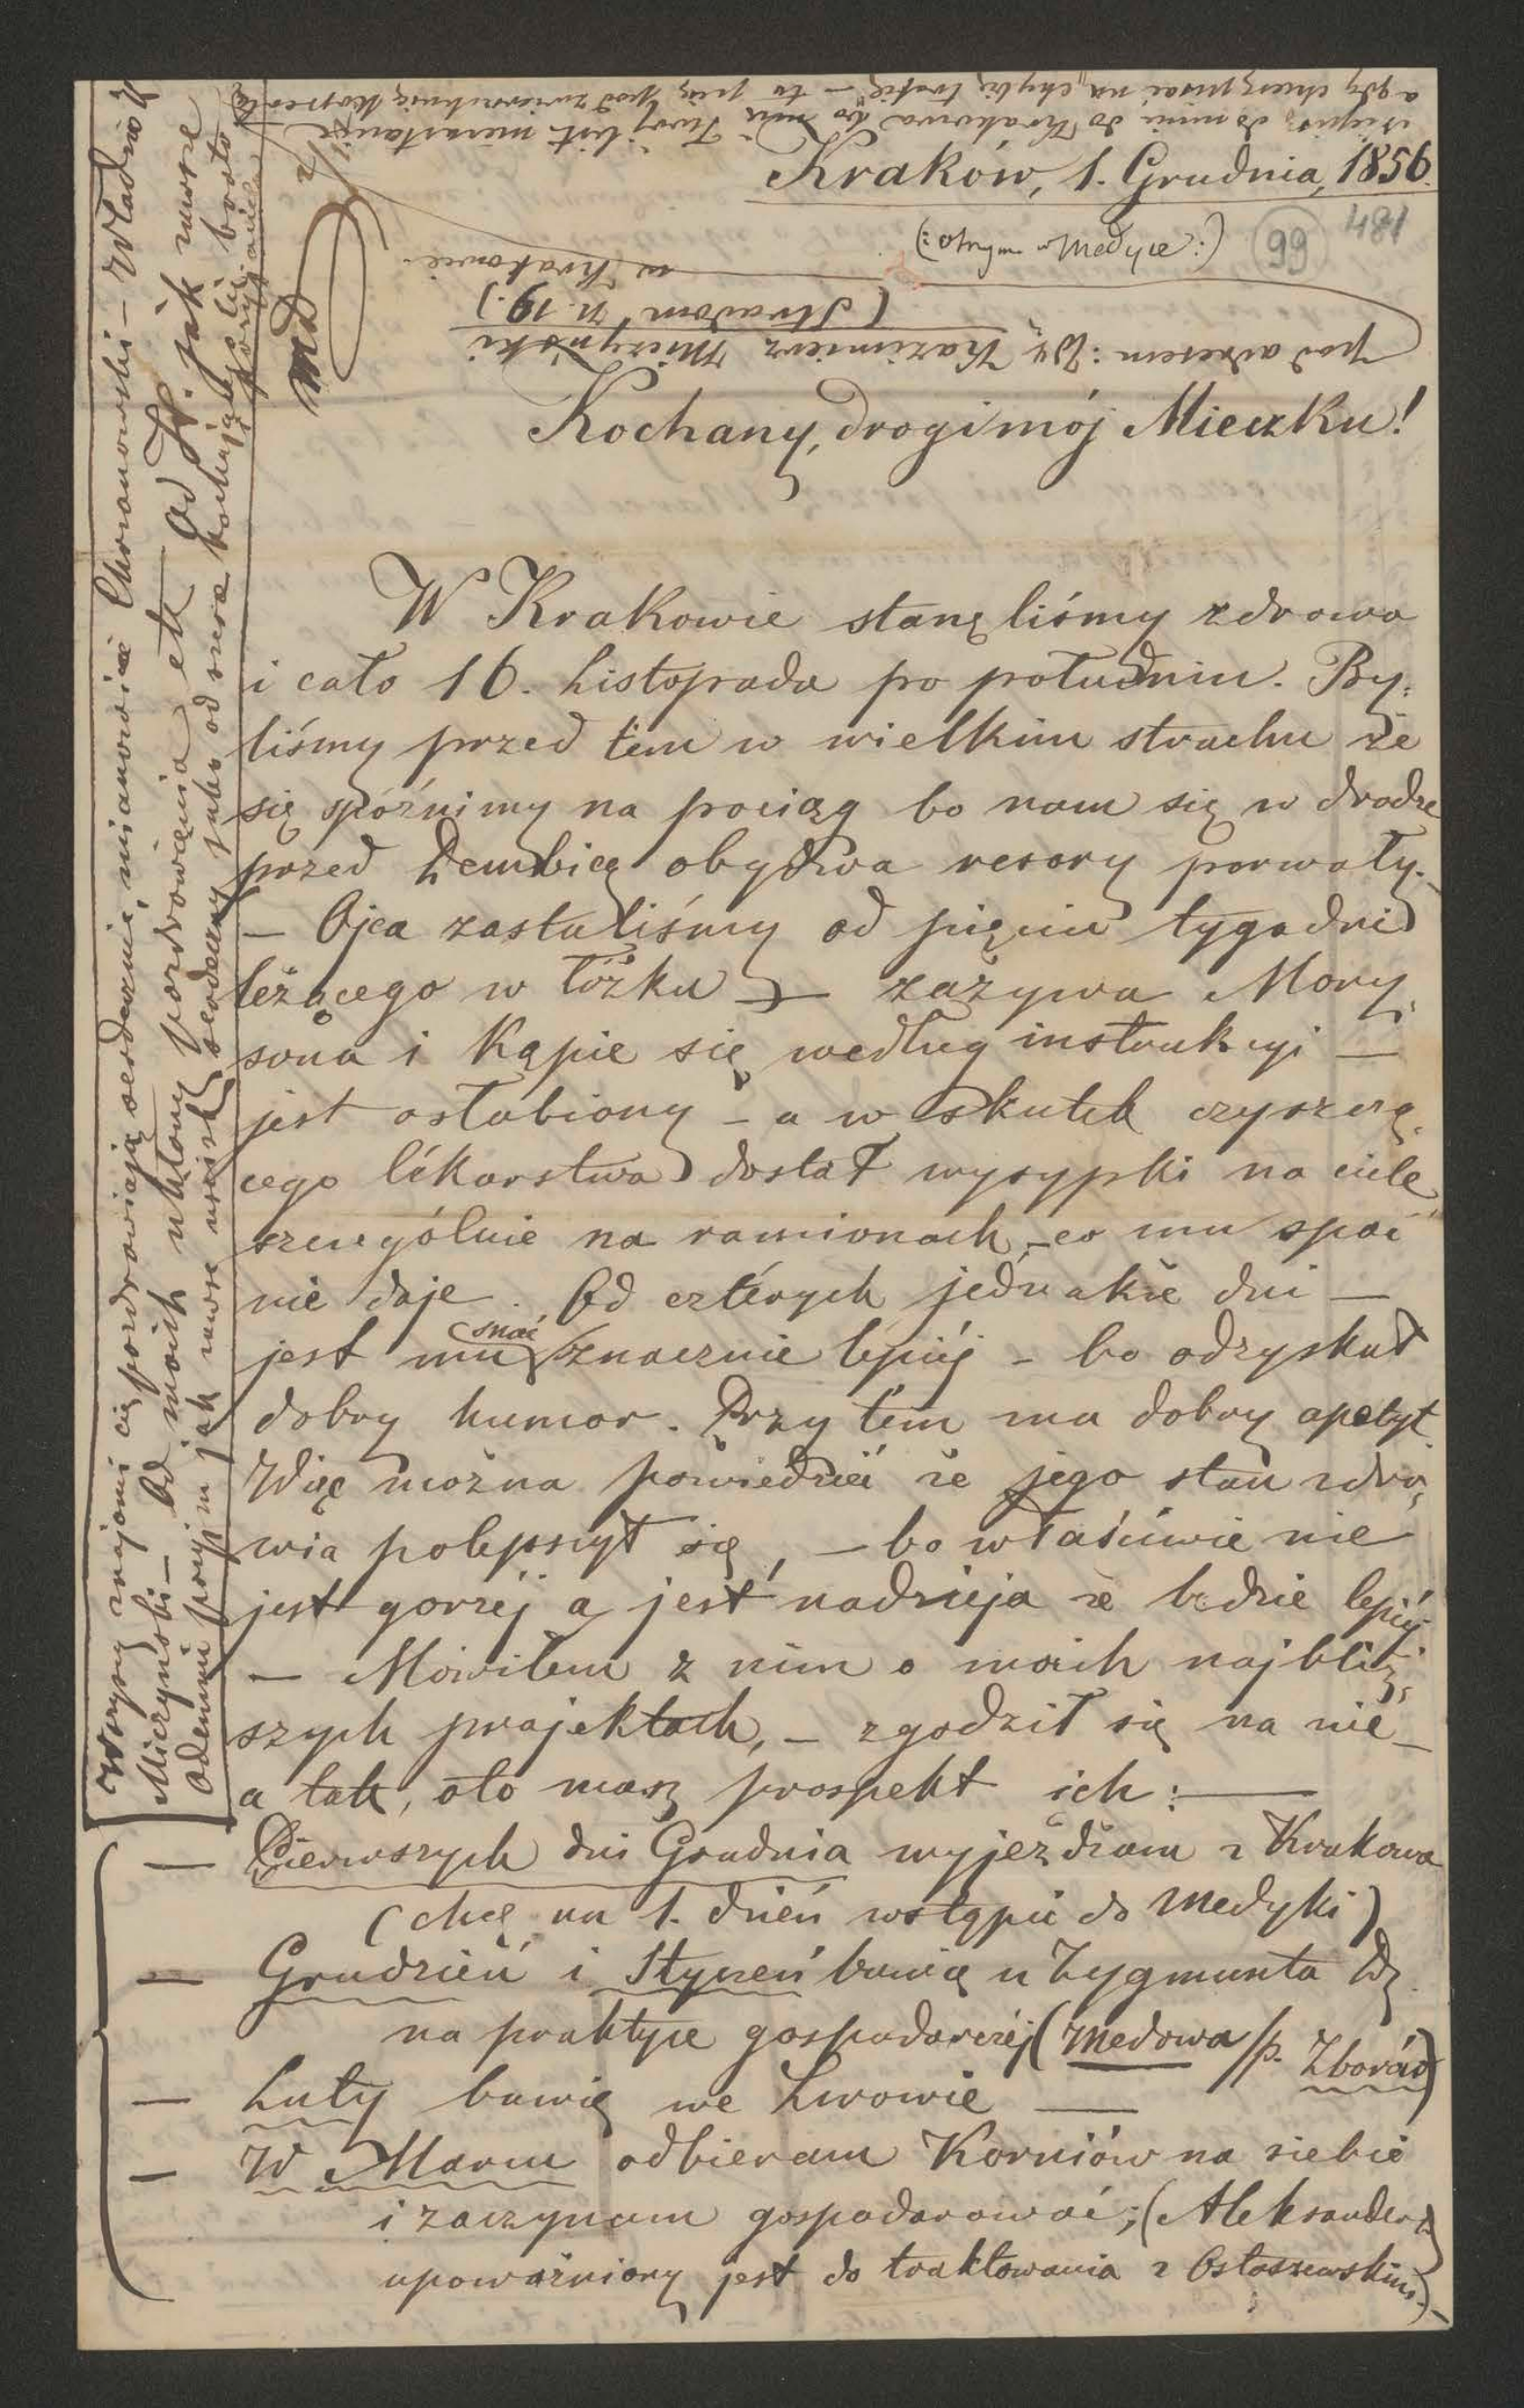 Kraków, 1. Grudnia, 1856.
(: otrzym. w Medyce :)
99
481
Kochany, drogi mój Mieczku!
W Krakowie stanęliśmy zdrowo
i cało 16. Listopada po południu. By-
liśmy przed tém w wielkim strachu że
się spóźnimy na pociąg bo nam się w drodze
przed Dembicą obydwa resory porwały.
— Ojca zastaliśmy od pięciu tygodni
leżącego w łóżku — zażywa Mory-
sona i kąpie się według instrukcyi —
jest osłabiony — a w skutek czyszczą-
cego lékarstwa dostał wysypki na ciele
szczególnie na ramionach, — co mu spać
nie daje. Od cztérych jednakże dni —
jest mu snać znacznie lepiéj — bo odzyskał
dobry humor. Przy tém ma dobry apetyt.
Więc można powiedzieć że jego stan zdro-
wia polepszył się, — bo właściwie nie
jest gorzéj a jest nadzieja że będzie lepiéj.
— Mówiłem z nim o moich najbliż-
szych projektach, — zgodził się na nie —
a tak, oto masz prospekt ich: —
— Pierwszych dni Grudnia wyjeżdżam z Krakowa
(chcę na 1. dzień wstąpić do Medyki)
— Grudzień i Styczeń bawię u Zygmunta Dz.
na praktyce gospodarczéj (Medowa /p. Zborów)
— Luty bawię we Lwowie —
— W Marcu odbieram Korniów na siebie
i zaczynam gospodarować; (Aleksander
upoważniony jest do traktowania z Ostaszewskim.) —
Wszyscy znajomi cię pozdrawiają serdecznie, mianowicie Chrzanowski — Władimir
Miczyński — Od moich ukłony pozdrowienia etc. — Od N. jak zawsze
odemnie przyjm jak zawsze uścisk serdeczny jako od szcze kochającego
Med
a gdy chcesz pisać na chybił trafił — to pisz pod zwierzchnią kopertą
do mnie do Krakowa bo mię Twój list niezastanie
pod adresem: Wy Kazimierz Miczyński
(Stradom n. 19.)
w Krakowie.